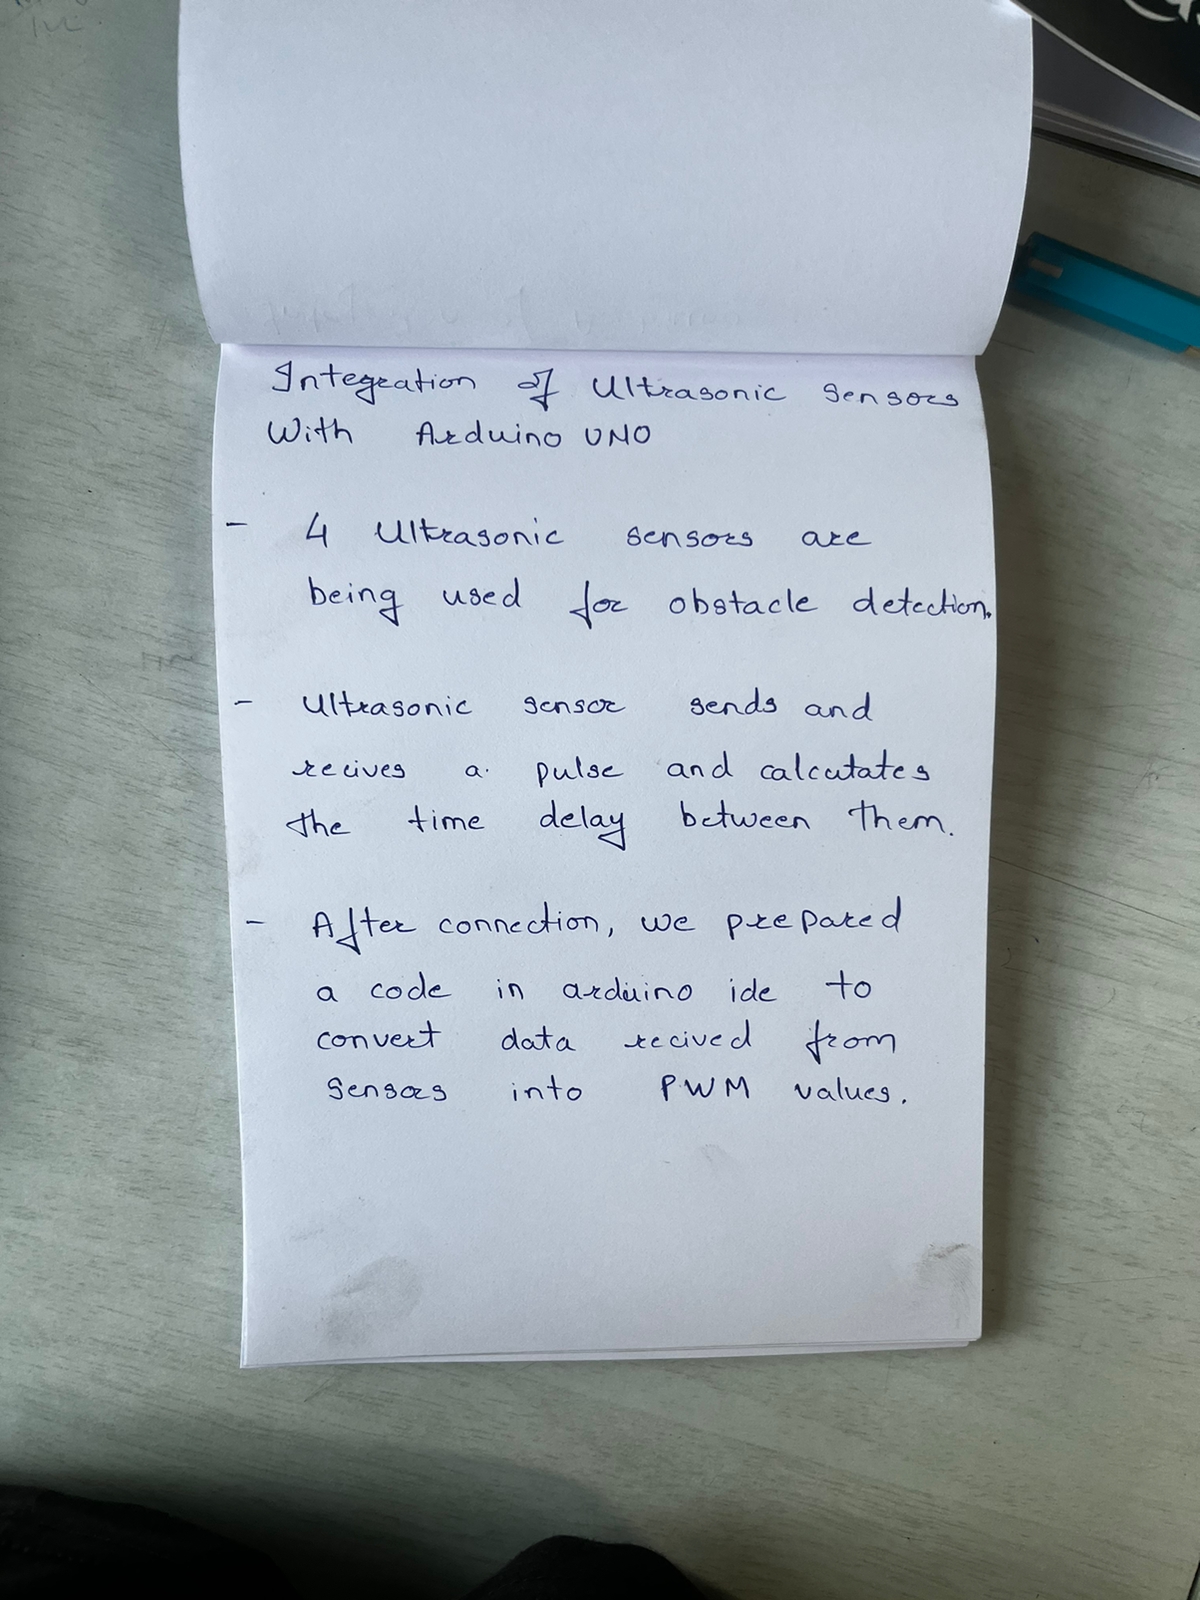 Integration of Ultrasonic sensors
With Arduino UNO
- 4 Ultrasonic sensors are
being used for obstacle detection.
- Ultrasonic sensor sends and
recives a pulse and calculates
the time delay between them.
- After connection, we prepared
a code in arduino ide to
convert data recived from
sensors into PWM values.